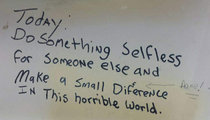 Today:
Do Something Selfless
for Someone else and
Make a Small Diference
In This horrible World.